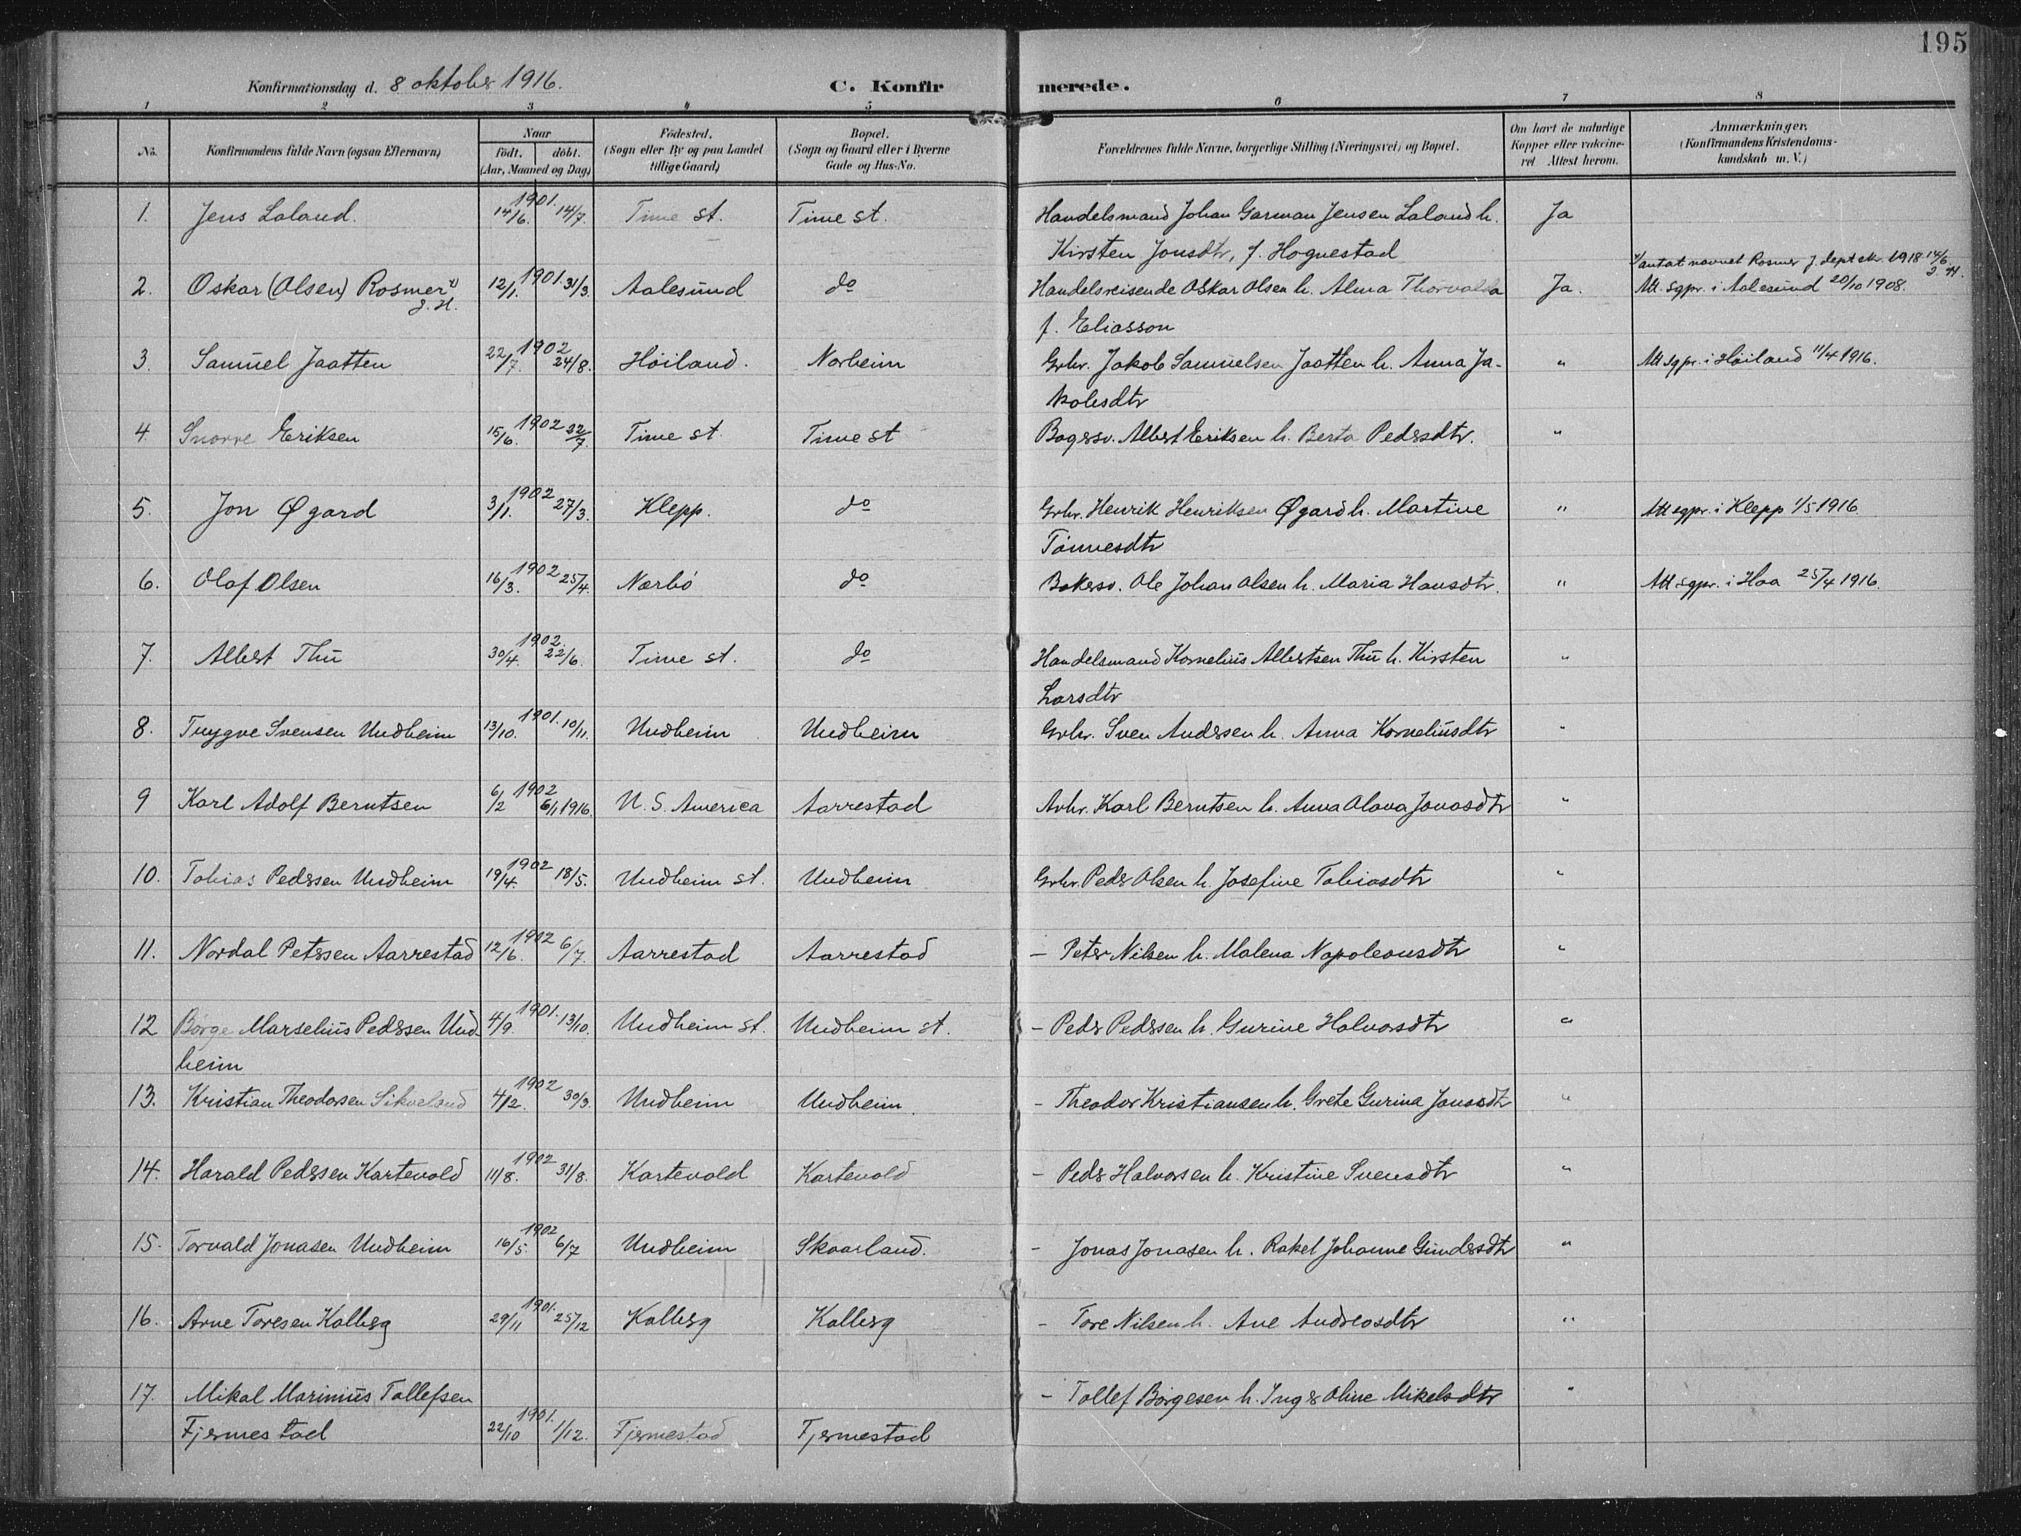 195
Konfirmationsdag d. 8 oktober 1916. C. Konfirmerede.
1 2 3 4 5 6 7 8
No. Konfirmandens fulde Navn (ogsaa Efternavn) Naar født. døbt. (Aar, Maaned og Dag) Fødested. (Sogn eller By og paa Landet tillige Gaard) Bopæl. (Sogn og Gaard eller i Byerne Gade og Hus-No. Forældrenes fulde Navne, borgerlige Stilling (Næringsvei) og Bopæl. Om havt de naturlige Kopper eller vakcineret Attest herom. Anmærkninger. (Konfirmandens Kristendomskundskab m. V.)
1. Jens Laland. 1901. 14/6. 14/7. Time st. Time st. Handelsmand Johan Garman Jensen Laland h. Ja
Kirsten Jonsdtr, f. Hognestad
1) antat navnet Rosmer j. dept skr. 1918 14/6
2. Oskar (Olsen) Rosmer 1) 12/1. 1901. 31/3. Aalesund do Handelsreisende Oskar Olsen h. Alma Thorvalda Ja. Att. sgpr. i Aalesund 20/10 1908.
f. Eliasson
3. Samuel Jaatten 22/7. 1902 24/8. Høiland. Norheim Grbr. Jakob Samuelsen Jaatten h. Anna Ja- " Att sgpr. i Høiland 11/4 1916.
kobsdtr
4. Snorre Eriksen 15/6. 1902 22/7. Time st. Time st Bagersv. Albert Eriksen h. Berta Pedersdtr. "
5. Jon Øgard 3/1. 1902 27/3. Klepp. do Grbr. Henrik Henriksen Øgard h. Martine " Att sgpr. i Klepp 1/5 1916.
Tønnesdtr
6. Olaf Olsen 16/3. 1902 25/4. Nærbø do Bakersv. Ole Johan Olsen h. Maria Hansdtr. " Att sgpr. i Haa 25/4 1916.
7. Albert Thu 30/4. 1902 22/6. Time st. do Handelsmand Kornelius Albertsen Thu h. Kirsten "
Larsdtr
8. Trygve Svensen Undheim 13/10. 1901. 10/11. Undheim Undheim Grbr. Sven Anderssen h. Anna Korneliusdtr "
9 Karl Adolf Berntsen 6/2 1902 6/1 1916. U. S. America Aarrestad Arbr. Karl Berntsen h. Anna Olava Jonasdtr "
10. Tobias Pederssen Undheim 19/4. 1902 18/5. Undheim st. Undheim Grbr. Peder Olsen h. Josefine Tobiasdtr "
11. Nordal Peterssen Aarrestad 12/6. 1902 6/7. Aarrestad Aarrestad - Peter Nilsen h. Malena Napoleonsdtr "
12 Børge Marselius Pederssen Und 4/9. 1901. 13/10. Undheim st. Undheim st. - Peder Pederssen h. Gurine Halvorsdtr "
heim
13. Kristian Theodorsen Sikveland 4/2. 1902 30/3. Undheim Undheim. - Theodor Kristiansen h. Grete Gurina Jonasdtr "
14. Harald Pederssen Kartevold 11/8. 1902 31/8. Kartevold Kartevold - Peder Halvorsen h. Kristine Svensdtr "
15. Torvald Jonasen Undheim 16/5. 1902 6/7 Undheim Skaarland. - Jonas Jonasen h. Rakel Johanne Gundersdtr "
16. Arne Toresen Kalberg 29/11 1901. 25/12 Kalberg Kalberg - Tore Nilsen h. Ane Andreasdtr "
17. Mikal Marinius Tollefsen - Tollef Børgesen h. Inger Oline Mikelsdtr "
Fjermestad 22/10 1901. 1/12. Fjermestad Fjermestad